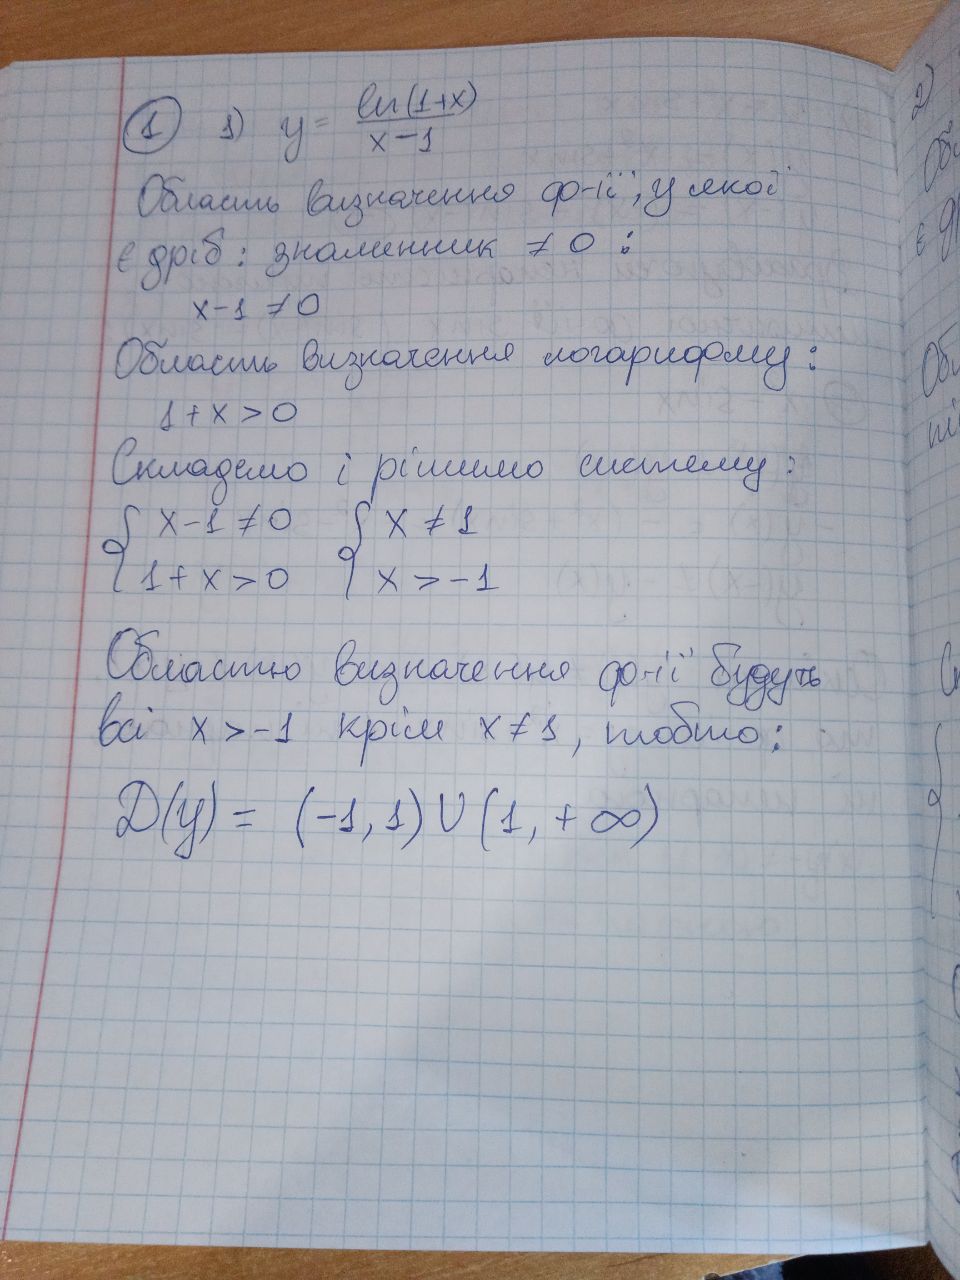 1 1) y = ln(1+x) / x-1
Область визначення ф-ії, у якої
є дріб: знаменник ≠ 0 :
x-1 ≠ 0
Область визначення логарифому:
1+x > 0
Складемо і рішимо систему:
{ x-1 ≠ 0 { x ≠ 1
1+x > 0 x > -1
Областю визначення ф-ії будуть
всі x > -1 крім x ≠ 1, тобто:
D(y) = (-1, 1) U (1, +∞)
2)
є